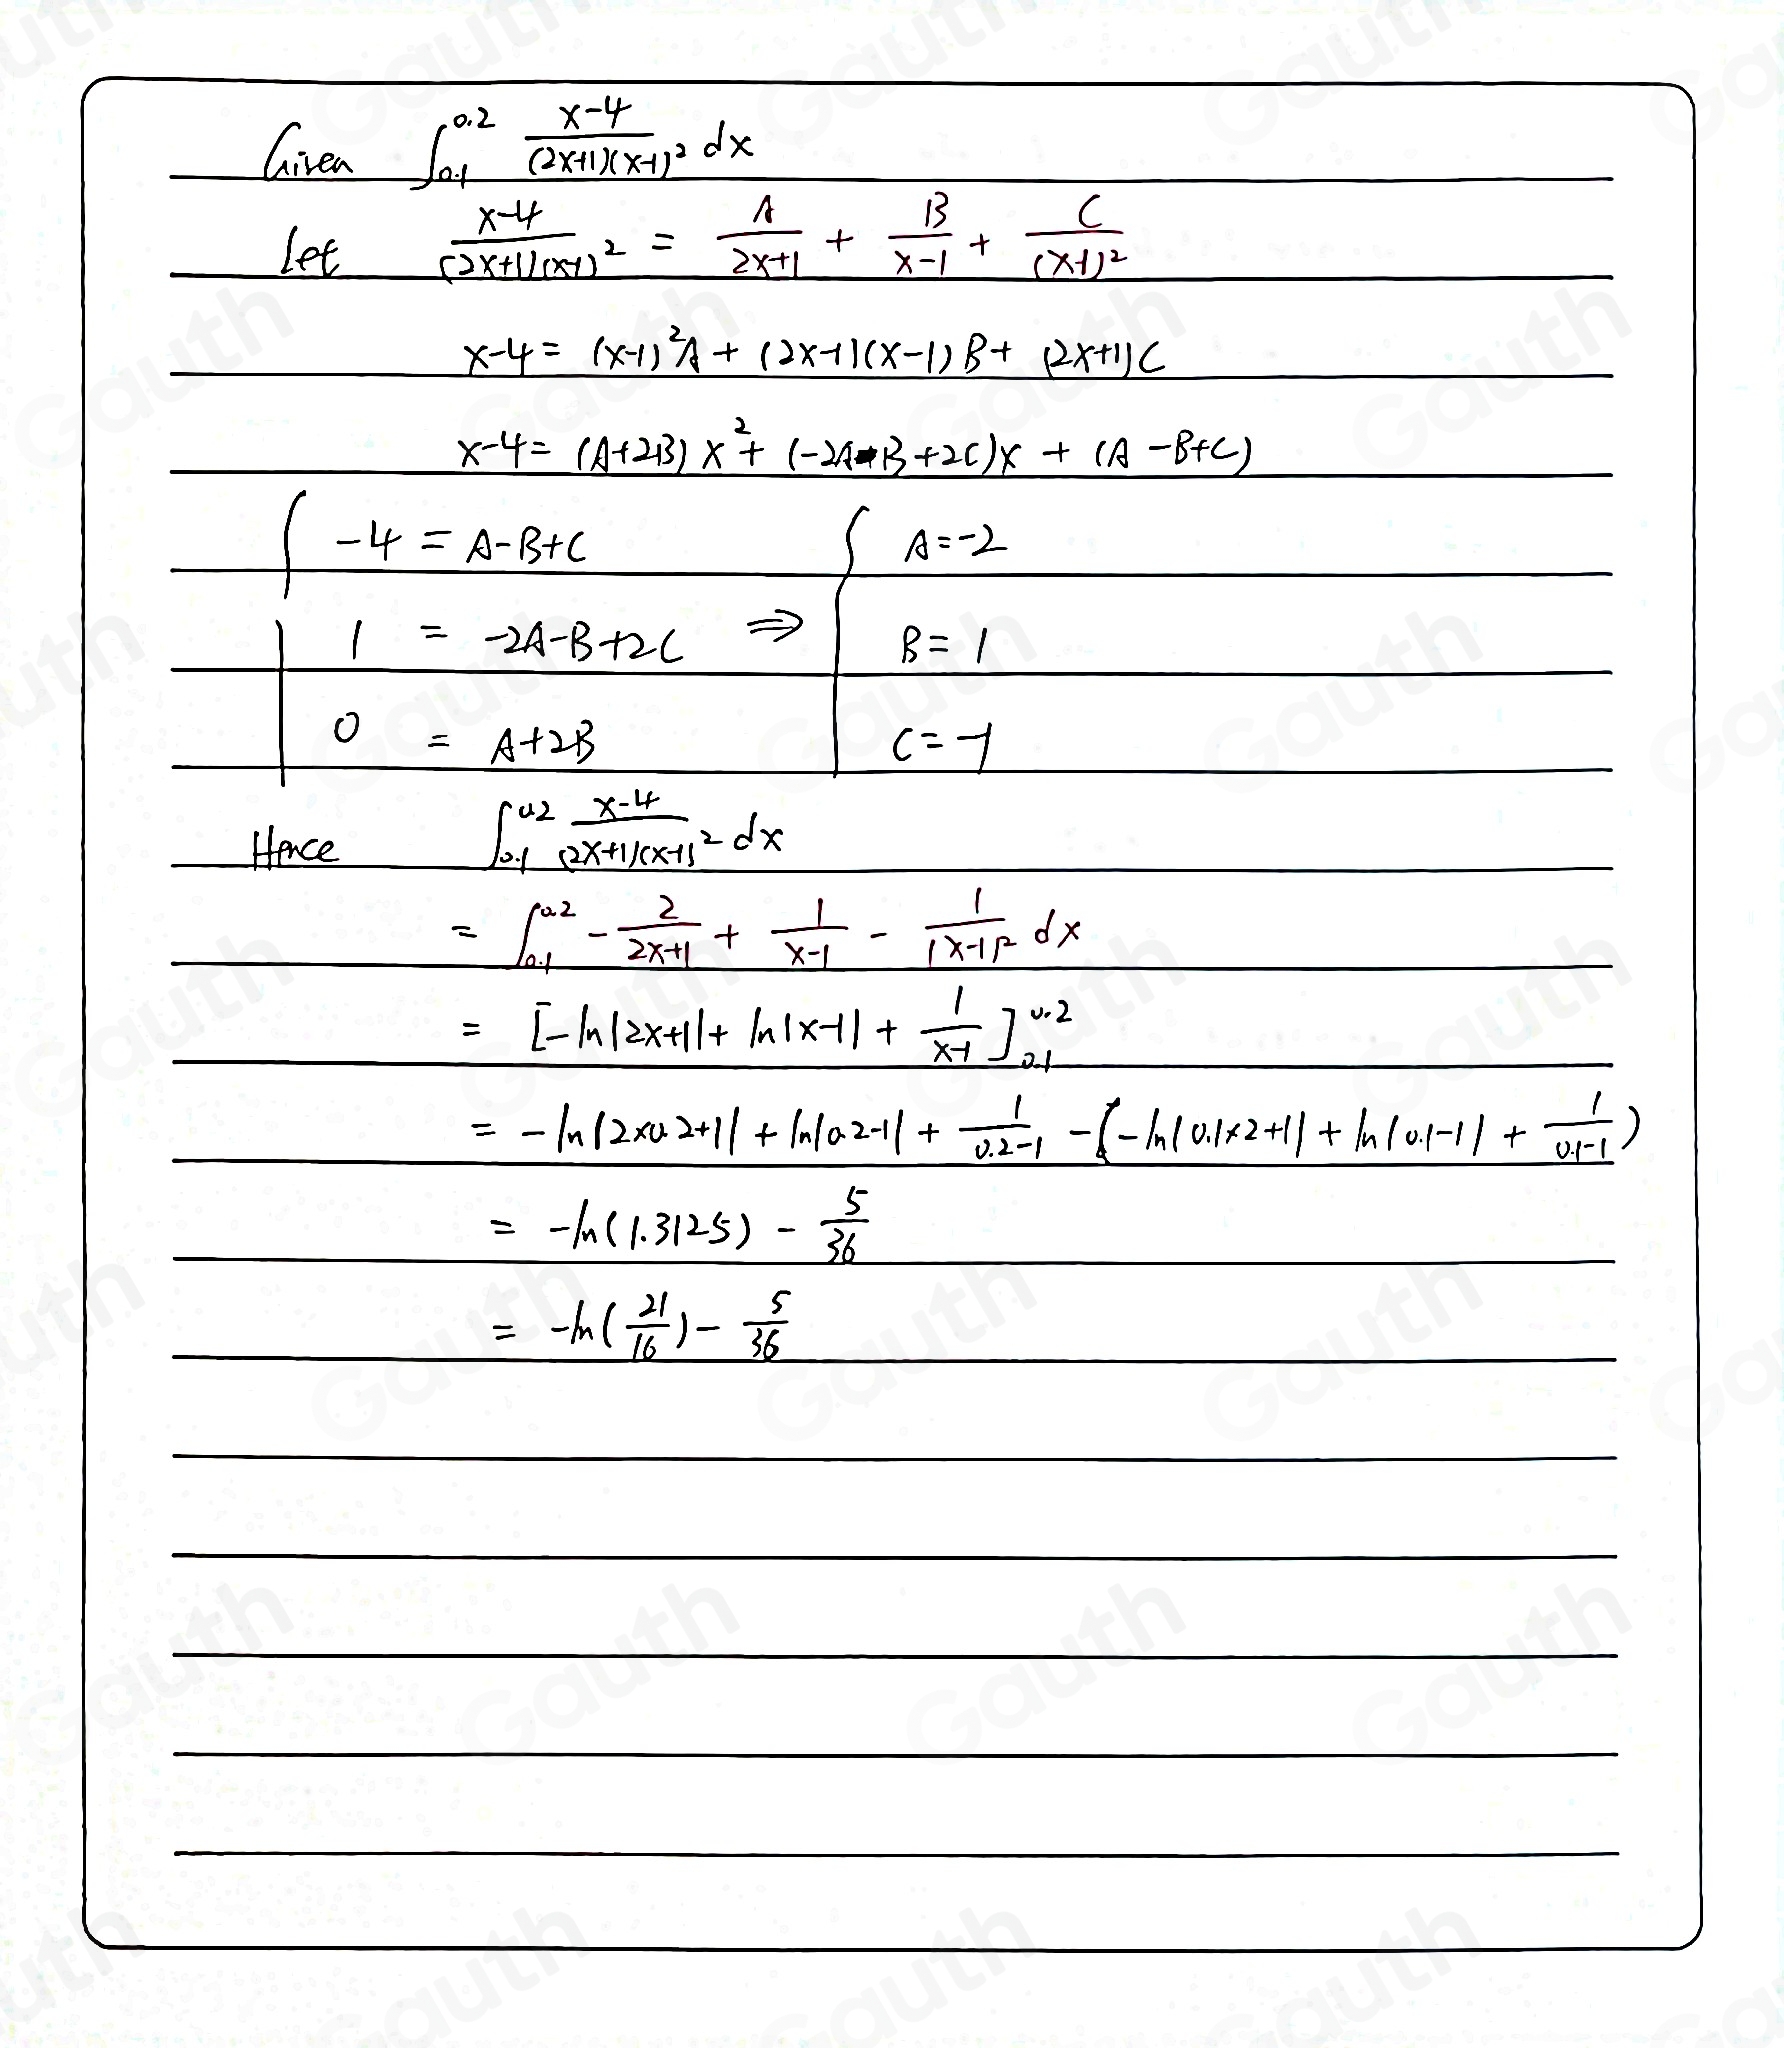 Given ∫₀.₁^0.2 (x-4)/((2x+1)(x-1)²) dx
Let (x-4)/((2x+1)(x-1)²) = A/(2x+1) + B/(x-1) + C/(x-1)²
x-4 = (x-1)²A + (2x+1)(x-1)B + (2x+1)C
x-4 = (A+2B)x² + (-2A-B+2C)x + (A-B+C)
{ -4 = A-B+C { A=-2
1 = -2A-B+2C ⇒ B=1
0 = A+2B C=-1
Hence ∫₀.₁^0.2 (x-4)/((2x+1)(x-1)²) dx
= ∫₀.₁^0.2 -2/(2x+1) + 1/(x-1) - 1/(x-1)² dx
= [-ln|2x+1| + ln|x-1| + 1/(x-1)]₀.₁^0.2
= -ln|2×0.2+1| + ln|0.2-1| + 1/(0.2-1) - (-ln|0.1×2+1| + ln|0.1-1| + 1/(0.1-1))
= -ln(1.3125) - 5/36
= -ln(21/16) - 5/36
Gauth